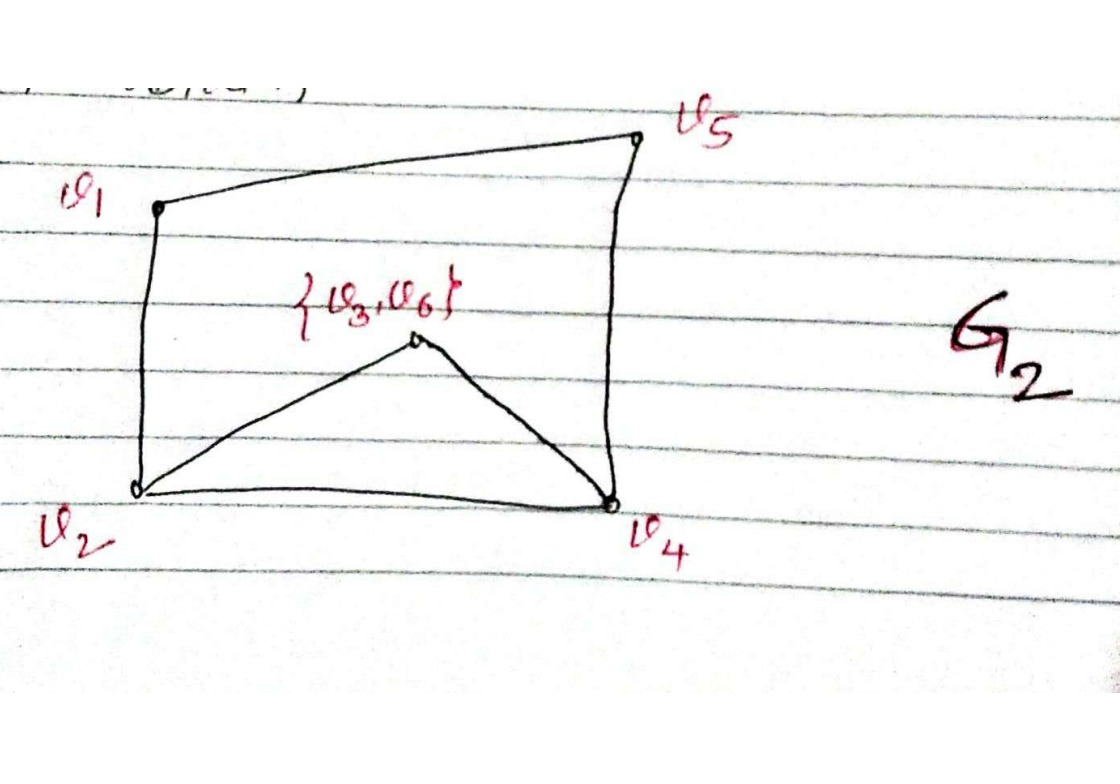 v5
v1
{v3, v6}
G2
v2
v4